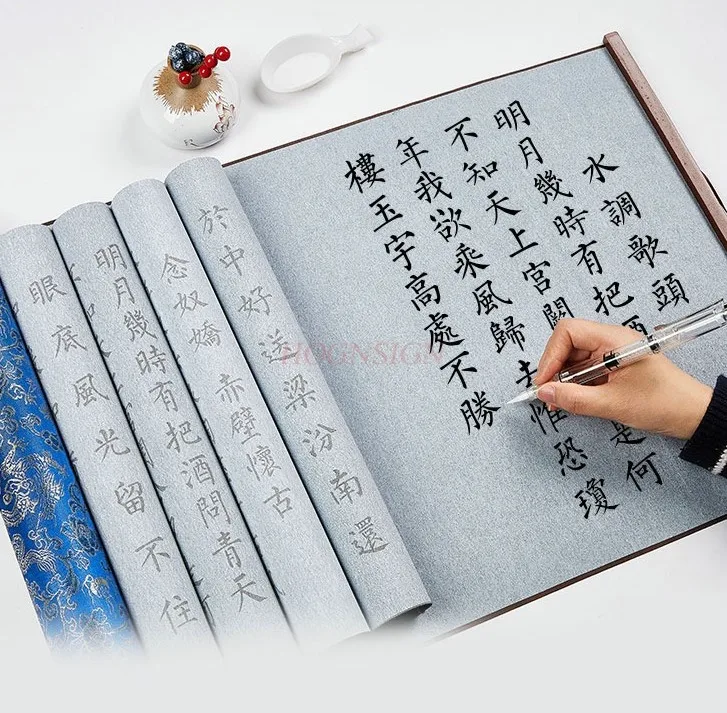 水調歌頭
明月幾時有把酒
不知天上宮闕是何
年我欲乘風歸去惟恐瓊
樓玉宇高處不勝
於中好送梁汾南還
念奴嬌赤壁懷古
明月幾時有把酒問青天
眼底風光留不住
HOGNSIGN